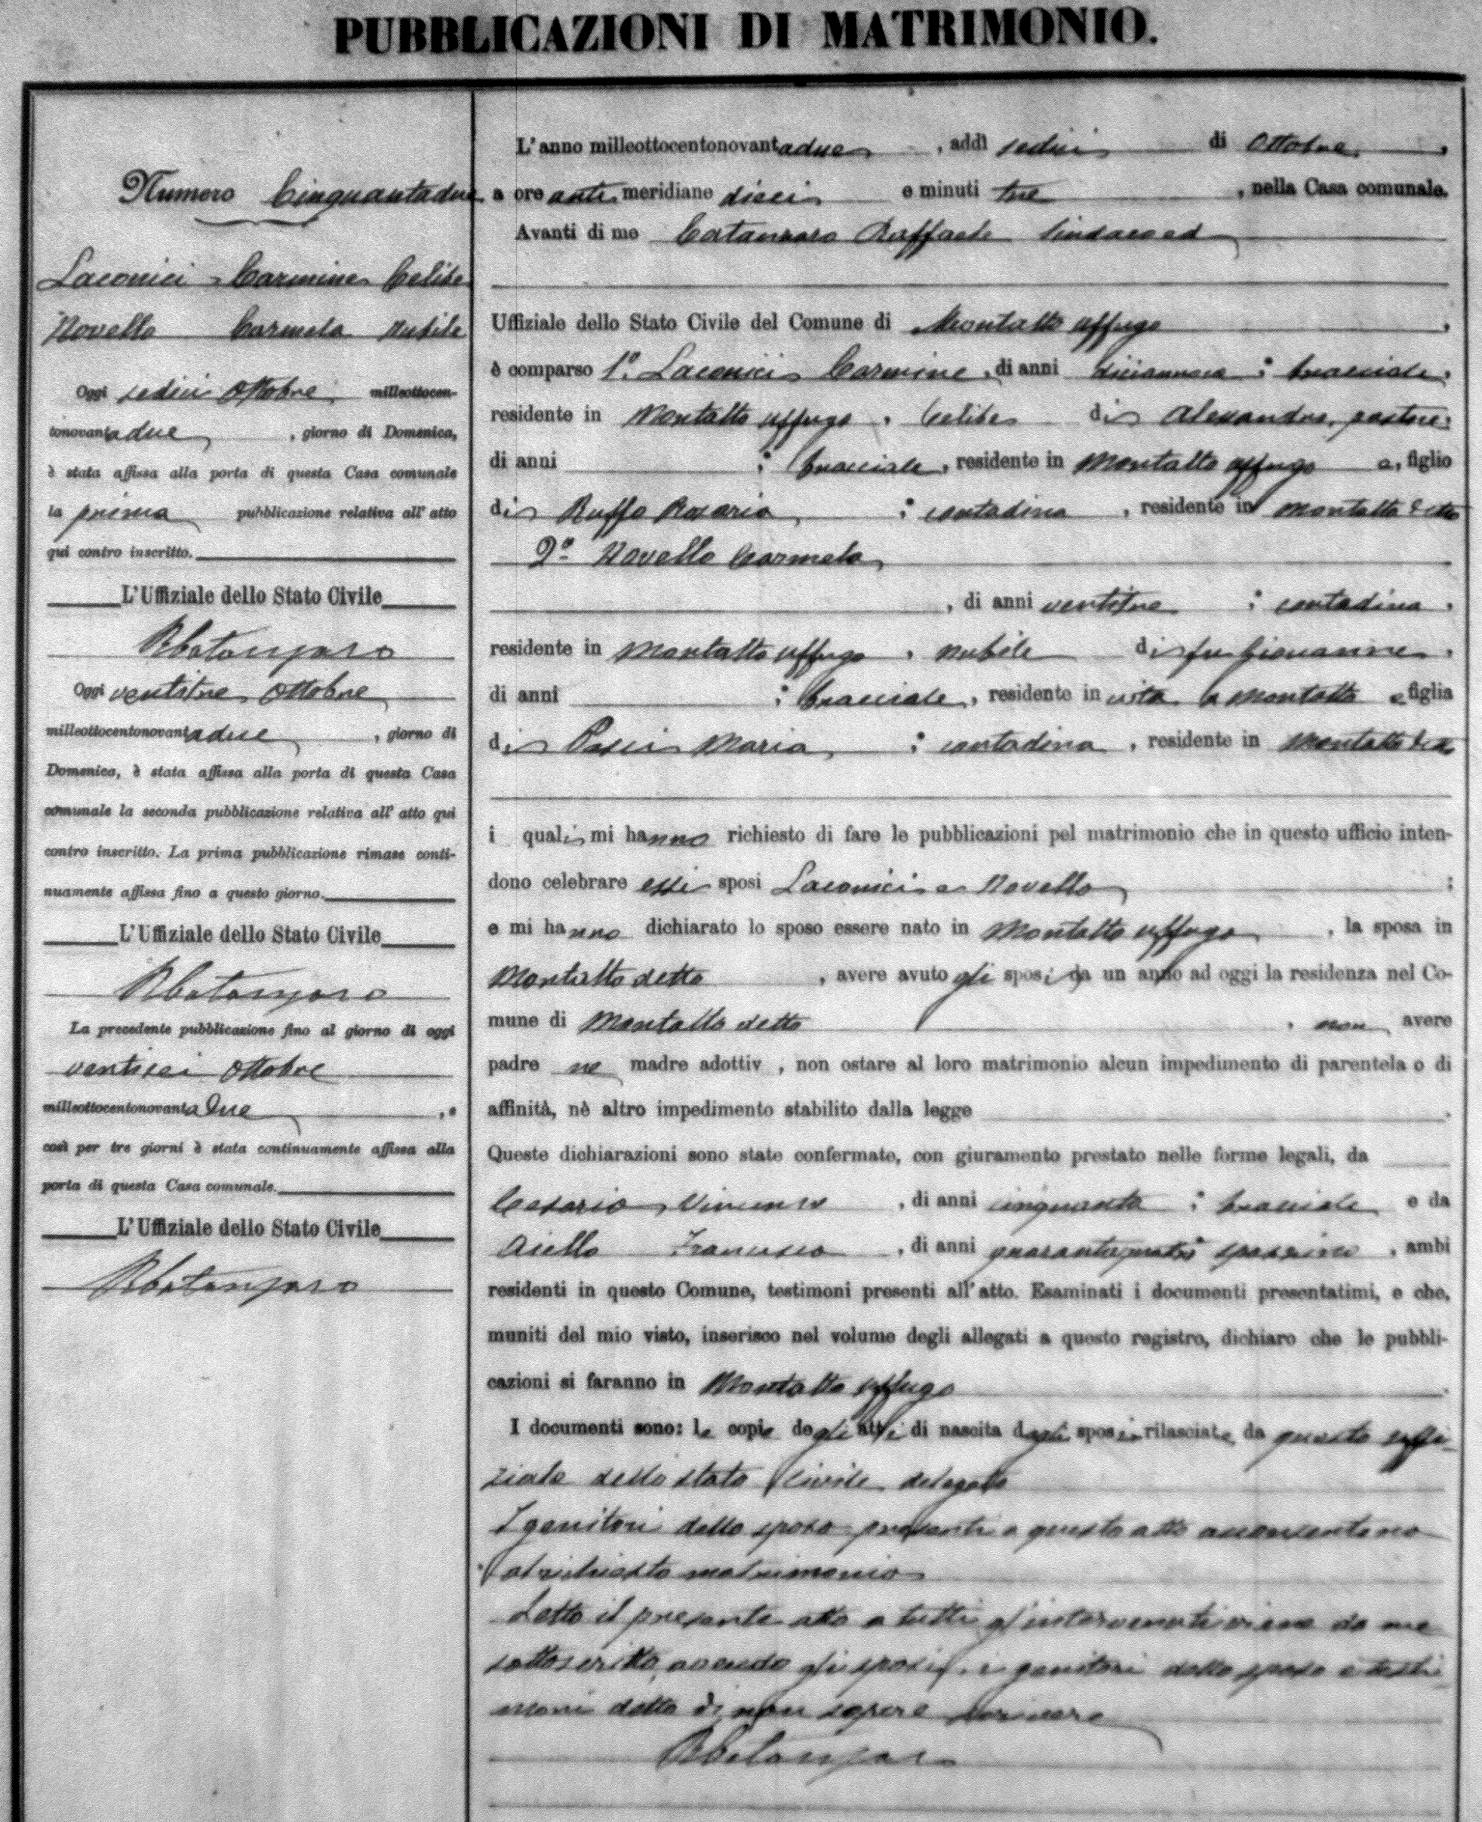 PUBBLICAZIONI DI MATRIMONIO.
Numero Cinquantadue
Laconici Carmine Celibe
Novello Carmela Nubile
Oggi sedici Ottobre milleottocen-
tonovantadue, giorno di Domenica,
è stata affissa alla porta di questa Casa comunale
la prima pubblicazione relativa all' atto
qui contro inscritto.
L'Uffiziale dello Stato Civile
RCatanzaro
Oggi ventitre Ottobre
milleottocentonovantadue, giorno di
Domenica, è stata affissa alla porta di questa Casa
comunale la seconda pubblicazione relativa all' atto qui
contro inscritto. La prima pubblicazione rimase conti-
nuamente affissa fino a questo giorno.
L'Uffiziale dello Stato Civile
RCatanzaro
La precedente pubblicazione fino al giorno di oggi
ventisei Ottobre
milleottocentonovantadue, e
così per tre giorni è stata continuamente affissa alla
porta di questa Casa comunale.
L'Uffiziale dello Stato Civile
RCatanzaro
L' anno milleottocentonovantadue, addì sedici di Ottobre,
a ore anti meridiane dieci e minuti tre, nella Casa comunale.
Avanti di me Catanzaro Raffaele Sindaco ed
Uffiziale dello Stato Civile del Comune di Montalto Uffugo,
è comparso 1º. Laconici Carmine, di anni diciannove; bracciale,
residente in Montalto Uffugo, celibe di Alessandro, pastore.
di anni ; bracciale, residente in Montalto Uffugo e, figlio
di Ruffo Rosaria ; contadina, residente in Montalto detto
2º Novello Carmela
, di anni ventitre ; contadina,
residente in Montalto Uffugo, nubile di fu Giovanni,
di anni ; bracciale, residente in vita a Montalto e figlia
di Pasci Maria ; contadina, residente in Montalto detto
i quali mi hanno richiesto di fare le pubblicazioni pel matrimonio che in questo ufficio inten-
dono celebrare essi sposi Laconici e Novello ;
e mi hanno dichiarato lo sposo essere nato in Montalto Uffugo, la sposa in
Montalto detto, avere avuto gli sposi da un anno ad oggi la residenza nel Co-
mune di Montalto detto, non avere
padre ne madre adottiv , non ostare al loro matrimonio alcun impedimento di parentela o di
affinità, nè altro impedimento stabilito dalla legge.
Queste dichiarazioni sono state confermate, con giuramento prestato nelle forme legali, da
Cesario Vincenzo, di anni cinquanta ; bracciale e da
Aiello Francesco, di anni ; ambi
residenti in questo Comune, testimoni presenti all' atto. Esaminati i documenti presentatimi, e che,
muniti del mio visto, inserisco nel volume degli allegati a questo registro, dichiaro che le pubbli-
cazioni si faranno in Montalto Uffugo
I documenti sono: le copie degli atti di nascita degli sposi rilasciate da questo uffi-
ziale dello stato Civile delegato
I genitori dello sposo presenti a questo atto acconsentono
al richiesto matrimonio
Letto il presente atto a tutti gl'intervenuti viene da me
sottoscritto avendo gli sposi, i genitori dello sposo e testi-
moni detto di non sapere scrivere
RCatanzaro